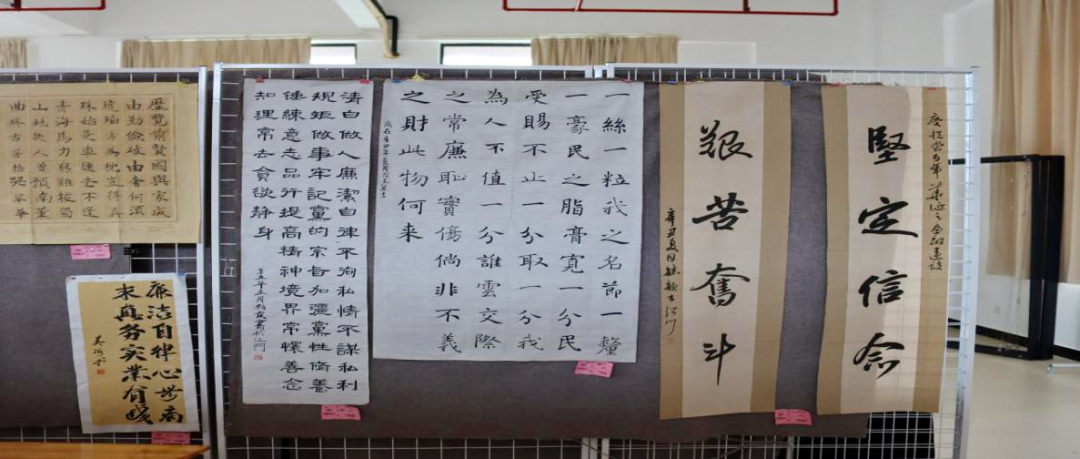 堅定信念
艱苦奮斗
一絲一粒我之名節一釐
一豪民之脂膏寬一分民
受賜不止一分取一分我
為人不值一分誰雲交際
之常廉恥實傷倘非不義
之財此物何來
清白做人廉潔自律不徇私情不謀私利
規矩做事牢記黨的宗旨加強黨性脩養
錘練意志品行提高精神境界常懷善念
知理常去貪欲靜身
歷覽前賢國與家成
由勤儉破由奢何須
琥珀方為枕豈得真
珠始是車運去不逢
青海馬力窮難拔蜀
山蛇幾人曾預南薰
曲終古蒼梧哭翠華
廉洁自律心
求真务实業有